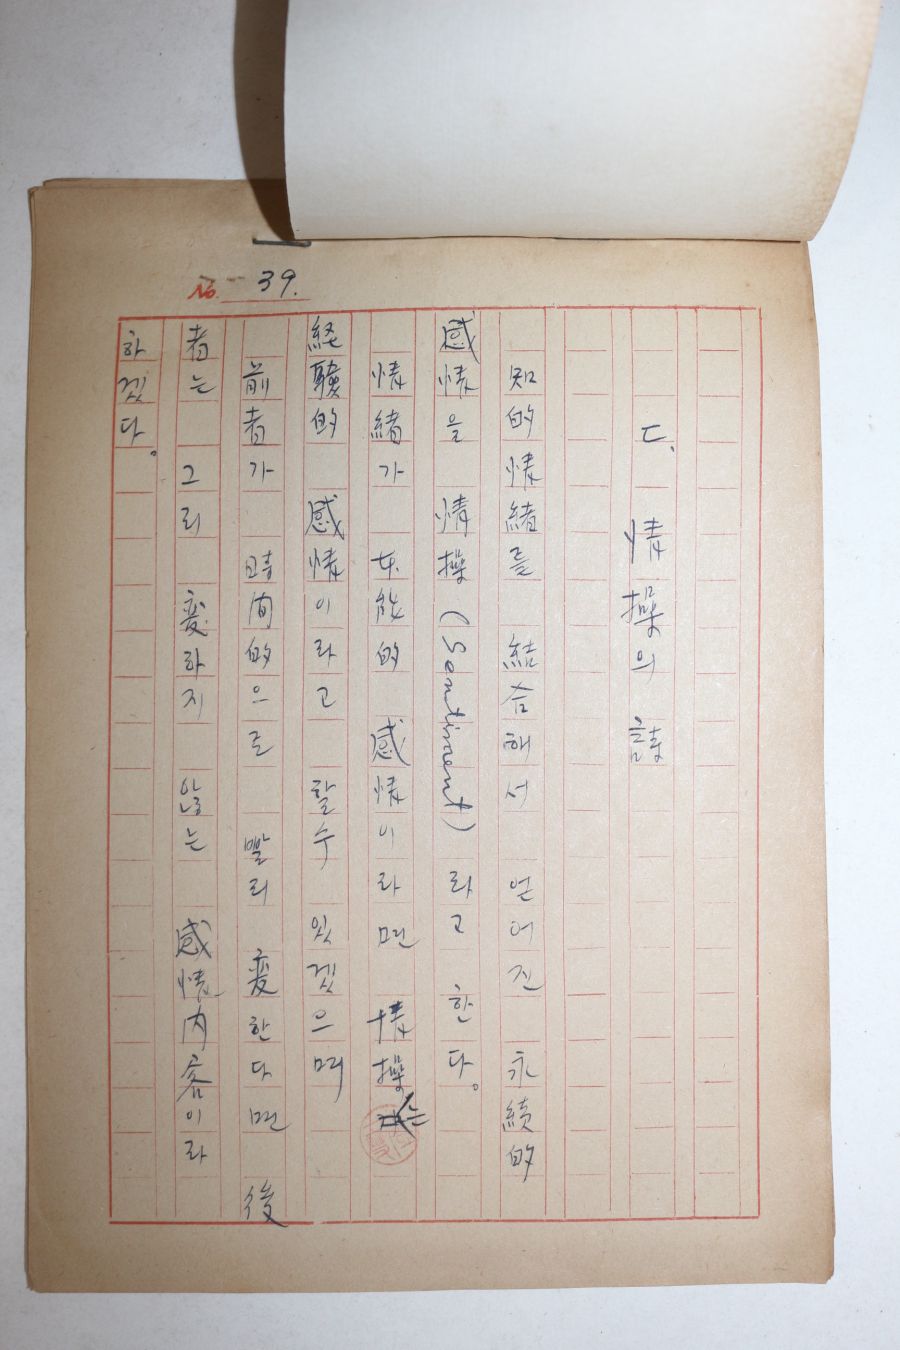 No. 39.
ㄷ、情操의 詩
知的情緖를 結合해서 얻어진 永續的
感情을 情操(Sentiment)라고 한다。
情緖가 本能的 感情이라면 情操는
経驗的 感情이라고 할수 있겠으며
前者가 時间的으로 빨리 変한다면 後
者는 그리 変하지 않는 感情内容이라
하겠다。